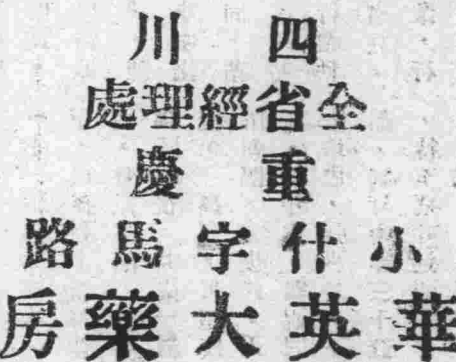 四川
全省經理處
重慶
小什字馬路
華英大藥房